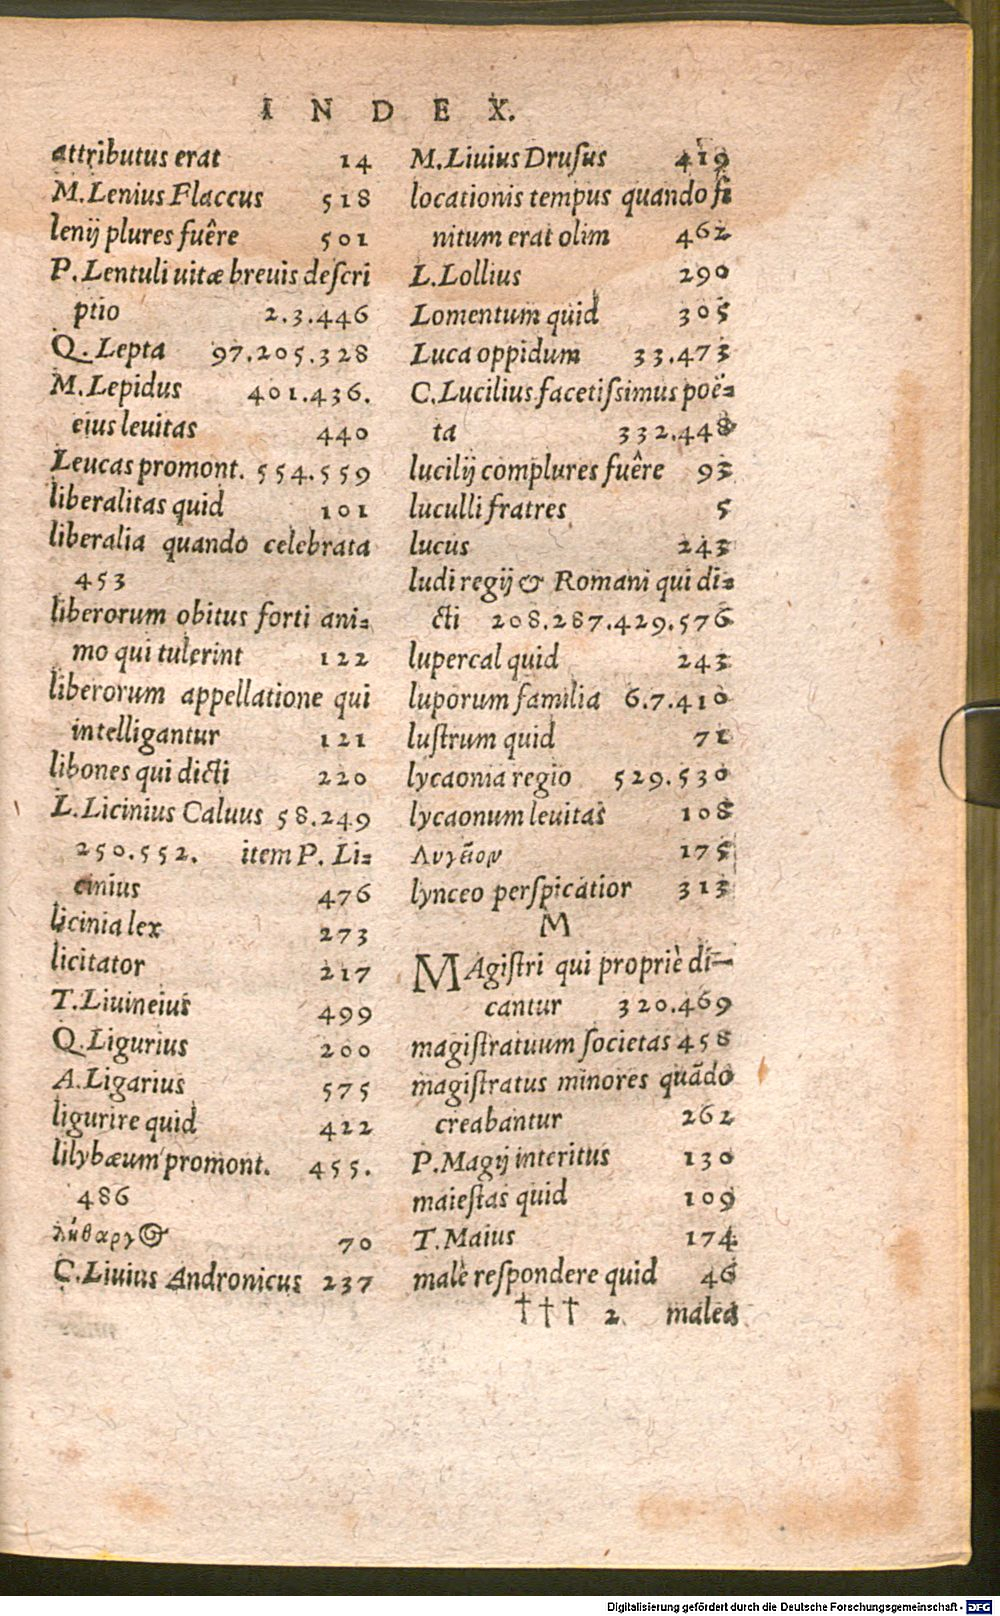 INDEX.
attributus erat 14
M.Lenius Flaccus 518
lenij plures fuêre 501
P.Lentuli uitæ breuis descri
ptio 2.3.446
Q.Lepta 97.205.328
M.Lepidus 401.436.
eius leuitas 440
Leucas promont. 554.559
liberalitas quid 101
liberalia quando celebrata
453
liberorum obitus forti ani-
mo qui tulerint 122
liberorum appellatione qui
intelligantur 121
libones qui dicti 220
L.Licinius Caluus 58.249
250.552. item P. Li-
cinius 476
licinia lex 273
licitator 217
T.Liuineius 499
Q.Ligurius 200
A.Ligarius 575
ligurire quid 422
lilybæum promont. 455.
486
λήθαργ⊙ 70
C.Liuius Andronicus 237
M.Liuius Drusus 419
locationis tempus quando fi
nitum erat olim 462
L.Lollius 290
Lomentum quid 305
Luca oppidum 33.473
C.Lucilius facetissimus poë-
ta 332.448
lucilij complures fuêre 93
luculli fratres 5
lucus 243
ludi regij & Romani qui di-
cti 208.287.429.576
lupercal quid 243
luporum familia 6.7.410
lustrum quid 71
lycaonia regio 529.530
lycaonum leuitas 108
175
lynceo perspicatior 313
M
MAgistri qui propriè di-
cantur 320.469
magistratuum societas 458
magistratus minores quãdo
creabantur 262
P.Magij interitus 130
maiestas quid 109
T.Maius 174
malè respondere quid 46
††† 2 malea
Digitalisierung gefördert durch die Deutsche Forschungsgemeinschaft - DFG